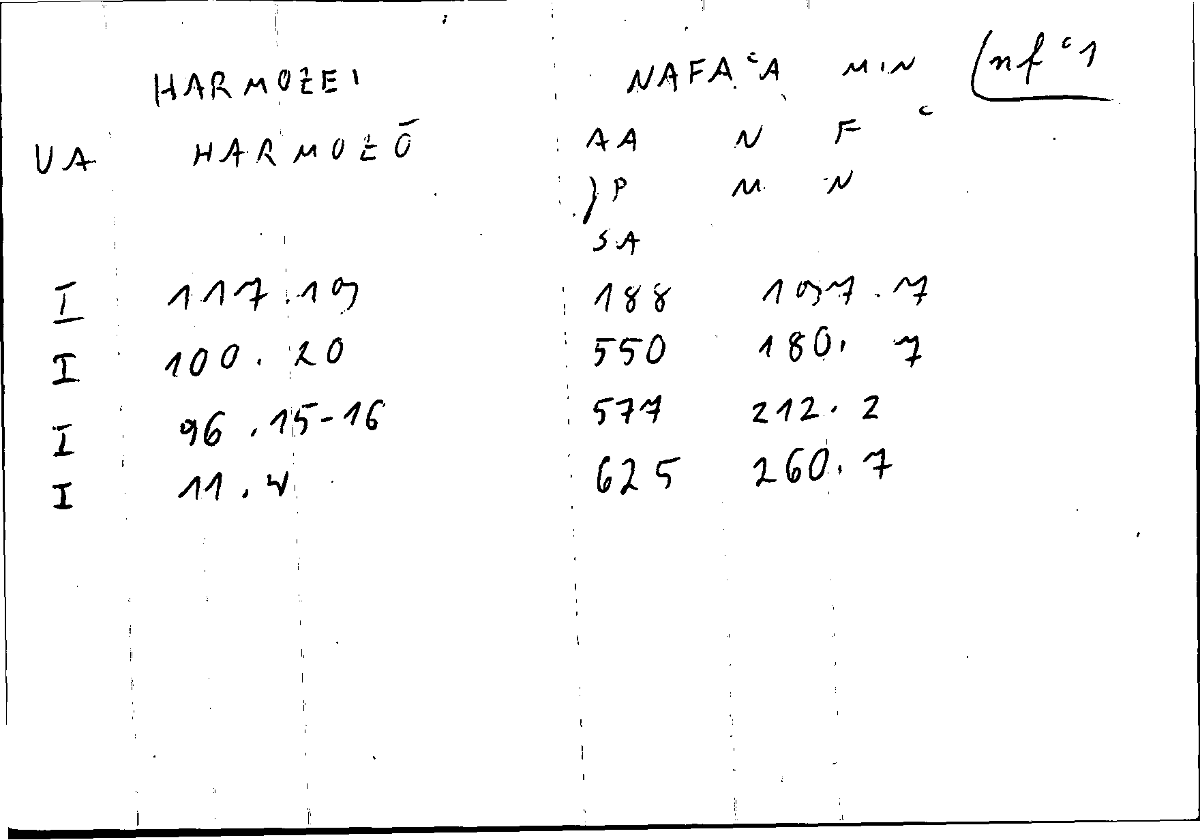 HARMOZEI NAFAʿA MIN (nf ʿ1
VA HARMOZŌ AA N F ʿ
)P M N
SA
I 117.19 188 197.7
I 100.20 550 180.7
I 96.15-16 577 212.2
I 11.4 625 260.7